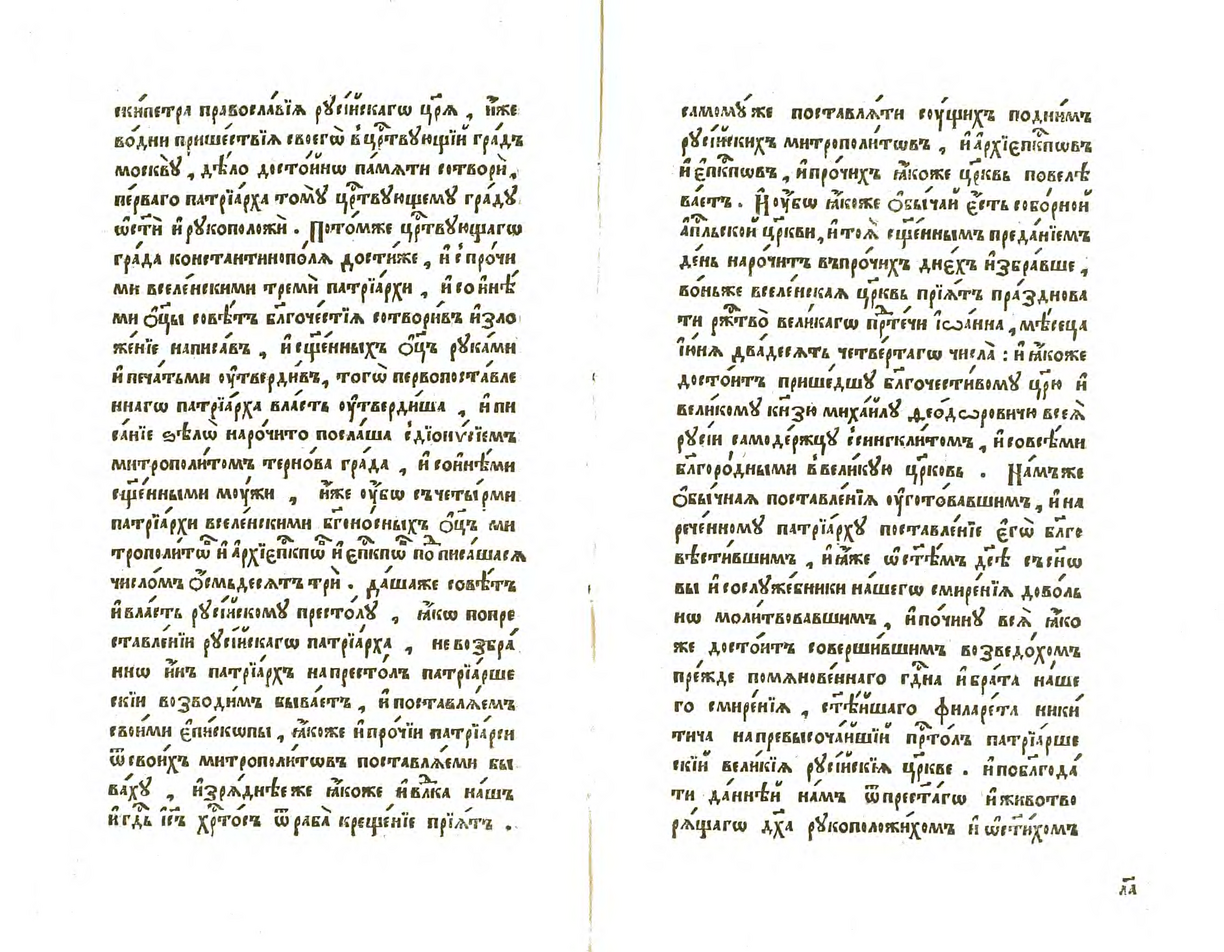 ски́петра правосла́вїѧ рꙋсі́йскагѡ цр҃ѧ̀ , и҆́же
во́дни прише́ствїѧ своегѡ̀ в҆црⷭ҇твующїй гра́дъ
москвꙋ̀ , дѣ́ло досто́йнѡ па́мѧти сотворѝ ,
пе́рваго патрїа́рха томꙋ̀ црⷭ҇твующемꙋ гра́дꙋ
ѡ҆ст҃ѝ и҆рꙋкоположѝ . Пото́мже црⷭ҇твующагѡ
гра́да константинопо́лѧ дости́же , и҆с҆прочи
ми вселе́нскими тремѝ патрїа́рхи , и҆со и҆нѣ́
ми ѻ҆ц҃ы совѣ́тъ бл҃гоче́стїѧ сотвори́въ и҆зло
же́нїе написа́въ , и҆сщ҃е́нныхъ ѻ҆ц҃ъ рꙋка́ми
и҆печа́тьми оу҆тверди́въ , тогѡ̀ первопоста́вле
ннагѡ патрїа́рха вла́сть оу҆тверди́ша , и҆пи
са́нїе ѕѣлѡ̀ наро́чито посла́ша с҆дїони́сїемъ
митрополи́томъ терно́ва гра́да , и҆сои҆нѣ́ми
сщ҃е́нными мꙋ́жи , и҆́же оу҆́бѡ съчеты́рми
патрїа́рхи вселе́нскими бг҃оно́сныхъ ѻ҆ц҃ъ ми
трополи́тѡⷡ и҆а҆рхїепⷭ҇кпѡⷡ и҆є҆пⷭ҇кпѡⷡ поⷣписа́шасѧ
число́мъ ѻ҆́смьдесѧтъ трѝ . да́шаже совѣ́тъ
и҆вла́сть рꙋсі́йскомꙋ престо́лꙋ , ꙗ҆́кѡ попре
ставле́нїи рꙋсі́йскагѡ патрїа́рха , невозбра́
ннѡ и҆́нъ патрїа́рхъ напресто́лъ патрїа́рше
скїи возводи́мъ быва́етъ , и҆поставлѧ́емъ
свои́ми є҆пи́скѡпы , ꙗ҆́коже и҆про́чїи патрїа́рси
ѿсвои́хъ митрополи́тѡвъ поставлѧ́еми бы
ва́хꙋ , и҆зрѧ́днѣе же ꙗ҆́коже и҆влⷣка на́шъ
и҆гдⷭ҇ь і҆с҃ъ хрⷭ҇то́съ ѿраба̀ креще́нїе прїѧ́тъ .
самомꙋ́же поставлѧ́ти сꙋ́щихъ подни́мъ
рꙋсі́йскихъ митрополи́тѡвъ , и҆а҆рхїєпⷭ҇кпѡвъ
и҆є҆пⷭ҇кпѡвъ , и҆про́чихъ ꙗ҆́коже цр҃квь повелѣ
ва́етъ . Ноу҆́бѡ ꙗ҆́коже ѻ҆бы́чай є҆́сть собо́рной
а҆пⷭ҇льской цр҃кви, и҆тоѧ̀ сщ҃е́ннымъ преда́нїемъ
де́нь наро́читъ въпро́чихъ дне́хъ и҆збра́вше ,
во́ньже вселе́нскаѧ цр҃квь прїѧ́тъ пра́зднова
ти ржⷭ҇тво̀ вели́кагѡ прⷣте́чи і҆ѡа́нна , мѣ́сѧца
і҆ю́нѧ два́десѧть четве́ртагѡ числа̀ : и҆ꙗ҆́коже
досто́итъ прише́дшꙋ бл҃гочести́вомꙋ цр҃ю и҆
вели́комꙋ кн҃зю миха́йлꙋ ѳео́дѡровичю всеѧ̀
рꙋсі́и самоде́ржцꙋ с҆сингкли́томъ , и҆совсѣ́ми
бл҃горо́дными в҆вели́кꙋю цр҃ковь . На́мъже
ѻ҆бы́чнаѧ поставле́нїѧ оу҆гото́вавшимъ , и҆на
рече́нномꙋ патрїа́рхꙋ поставле́нїе є҆гѡ̀ бл҃гo
вѣсти́вшимъ , и҆ꙗ҆́же ѡ҆ст҃ѣ́мъ дс҃ѣ съсн҃ѡ
вы и҆сослꙋже́бники на́шегѡ смире́нїѧ дово́ль
нѡ моли́твовавшимъ , и҆почи́нꙋ всѧ̀ ꙗ҆́ко
же досто́итъ соверши́вшимъ возведо́хомъ
пре́жде помѧнове́ннаго гдⷭ҇на и҆бра́та на́ше
го смире́нїѧ , ст҃ѣ́йшаго филаре́та ники́
тича напревысоча́йшїй прⷭ҇то́лъ патрїа́рше
скїй вели́кїѧ рꙋсі́йскїѧ цр҃кве . и҆поблгода́
ти да́ннѣй на́мъ ѿпрест҃а́гѡ и҆животво
рѧ́щагѡ дх҃а рꙋкоположи́хомъ и҆ ѡ҆ст҃и́хомъ
л҃а